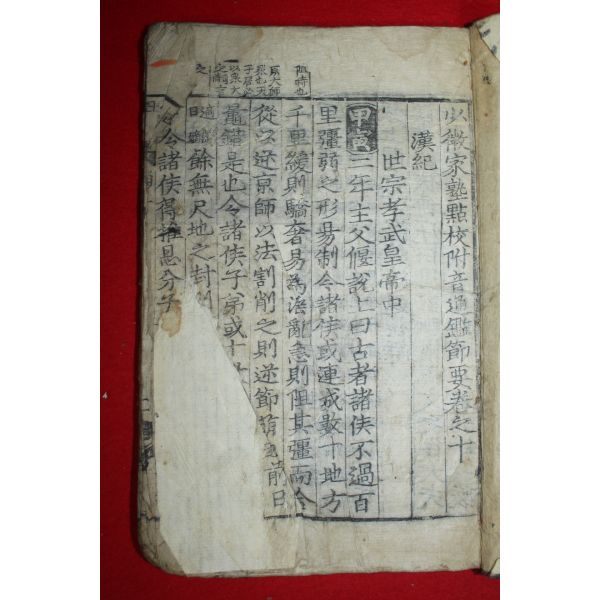 少微家塾點校附音通鑑節要卷之十
漢紀
世宗孝武皇帝中
阻恃也
京大師
衆也天
子居必
以衆大
之辭言
之
甲寅三年主父偃說上曰古者諸侯不過百
里彊弱之形易制今諸侯或連城數十地方
千里緩則驕奢易為淫亂急則阻其彊而合
從以逆京師以法割削之則逆節萌起前日
鼂錯是也今諸侯子弟或十
餘無尺地之封
令諸侯得推恩分子